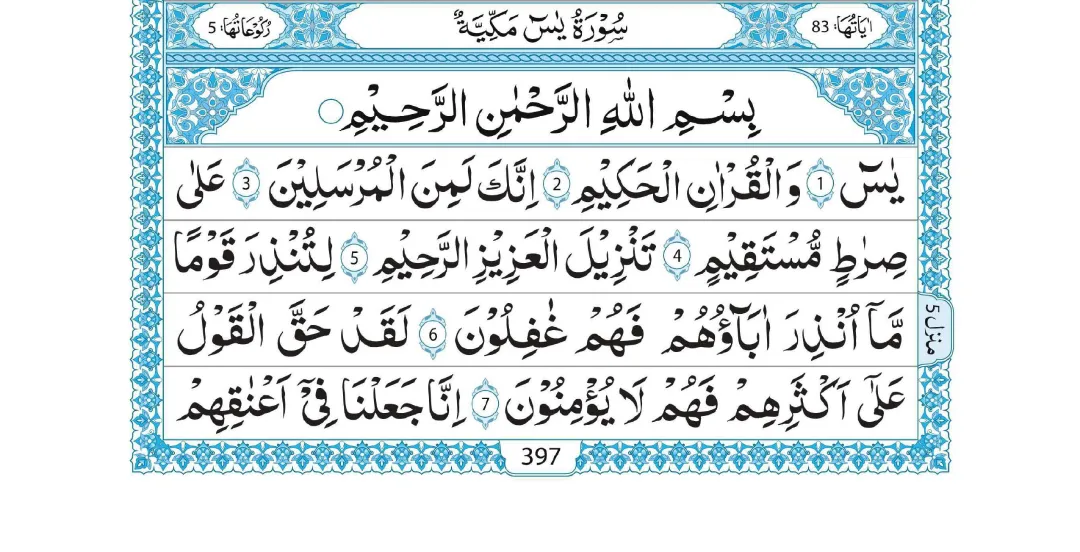 اٰیَاتُهَا: 83 سُوْرَةُ یٰسٓ مَكِّیَّةٌ رُكُوْعَاتُهَا: 5
بِسْمِ اللّٰهِ الرَّحْمٰنِ الرَّحِیْمِ ○
یٰسٓ 1 وَالْقُرْاٰنِ الْحَكِیْمِ 2 اِنَّكَ لَمِنَ الْمُرْسَلِیْنَ 3 عَلٰی
صِرٰطٍ مُّسْتَقِیْمٍ 4 تَنْزِیْلَ الْعَزِیْزِ الرَّحِیْمِ 5 لِتُنْذِرَ قَوْمًا
مَّاۤ اُنْذِرَ اٰبَآؤُهُمْ فَهُمْ غٰفِلُوْنَ 6 لَقَدْ حَقَّ الْقَوْلُ
عَلٰۤی اَكْثَرِهِمْ فَهُمْ لَا یُؤْمِنُوْنَ 7 اِنَّا جَعَلْنَا فِیْۤ اَعْنٰقِهِمْ
منزل 5
397